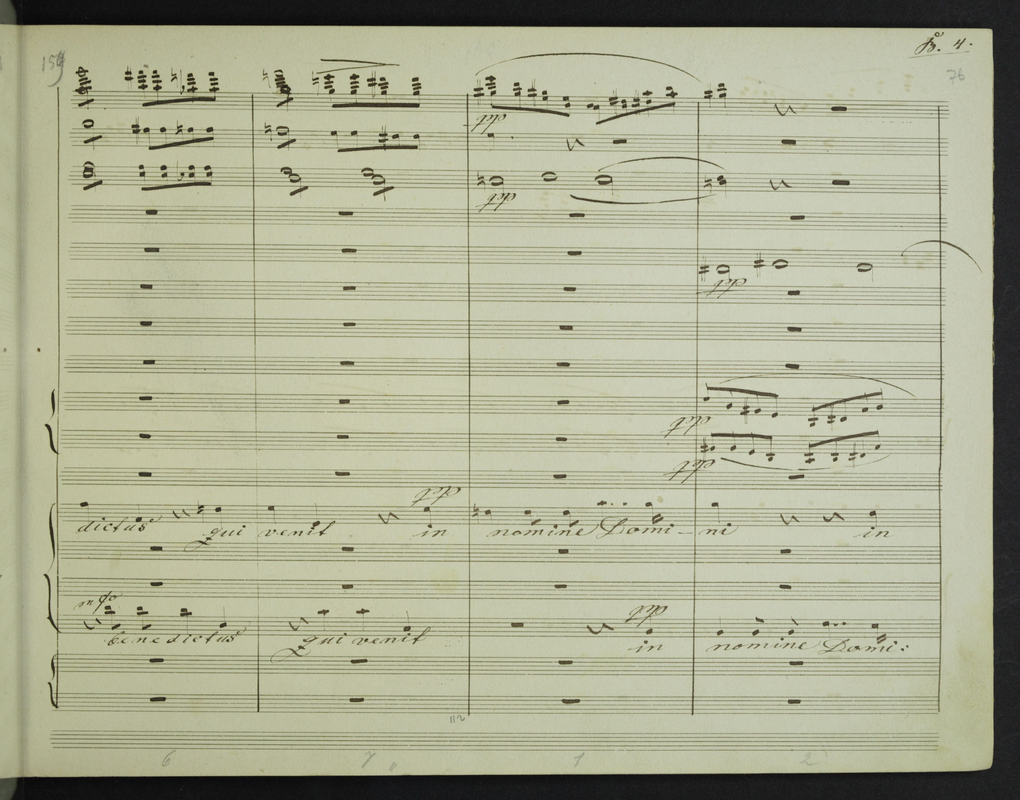 159
B. 4.
76
dictus qui venit in nomine Domi-ni in
mfo
benedictus qui venit in nomine Domi:
112
6 7 1 2